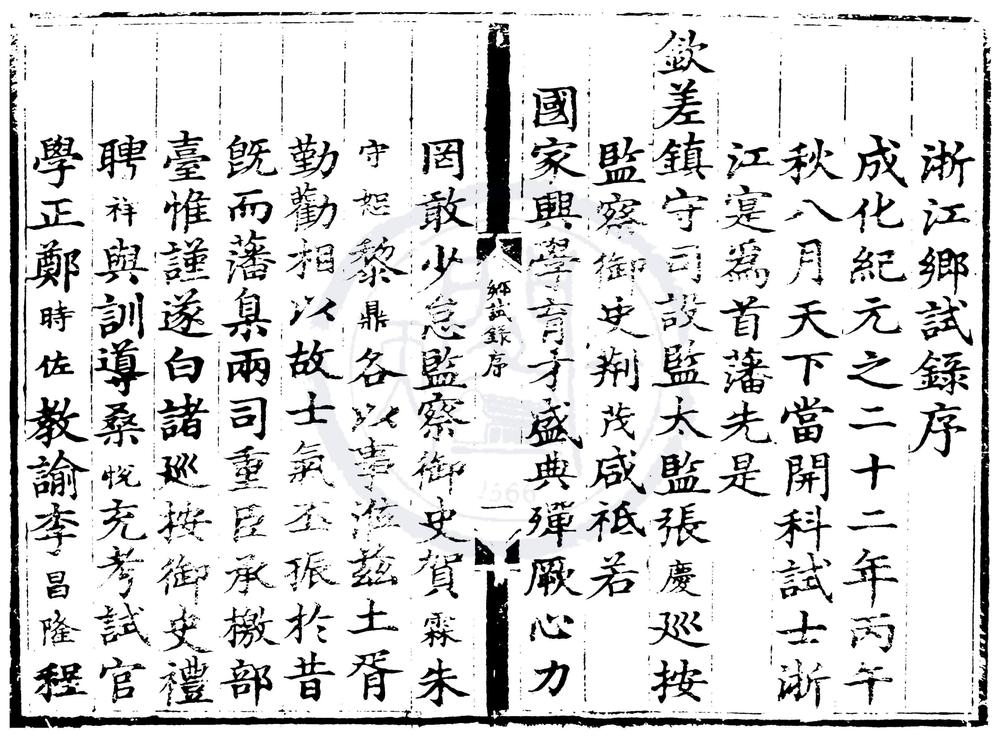 浙江鄉試錄序
成化紀元之二十二年丙午
秋八月天下當開科試士浙
江寔爲首藩先是
欽差鎮守司設監太監張慶巡按
監察御史荆茂咸祗若
國家興學育才盛典殫厥心力
鄉試錄序
一
罔敢少怠監察御史賀霖朱
守恕黎鼎各以事涖茲土胥
勤勸相以故士氣丕振於昔
旣而藩臬兩司重臣承檄部
臺惟謹遂白諸巡按御史禮
聘祥與訓導桑悅充考試官
學正鄭時佐教諭李昌隆程
1566